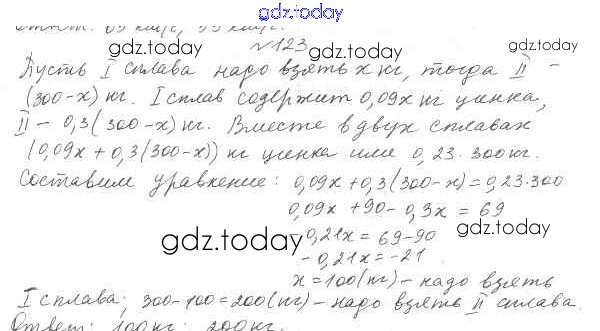 gdz.today
Ответ: 65 км/ч, 55 км/ч.
gdz.today №123 gdz.today
Пусть I сплава надо взять x кг, тогда II –
(300-x) кг. I сплав содержит 0,09x кг цинка,
II – 0,3(300-x) кг. Вместе в двух сплавах
(0,09x + 0,3(300-x)) кг цинка или 0,23·300 кг.
Составим уравнение: 0,09x + 0,3(300-x) = 0,23·300
gdz.today
0,09x + 90 - 0,3x = 69
gdz.today
-0,21x = 69-90
-0,21x = -21
x = 100 (кг) – надо взять
I сплава; 300-100 = 200 (кг) – надо взять II сплава.
Ответ: 100 кг; 200 кг.